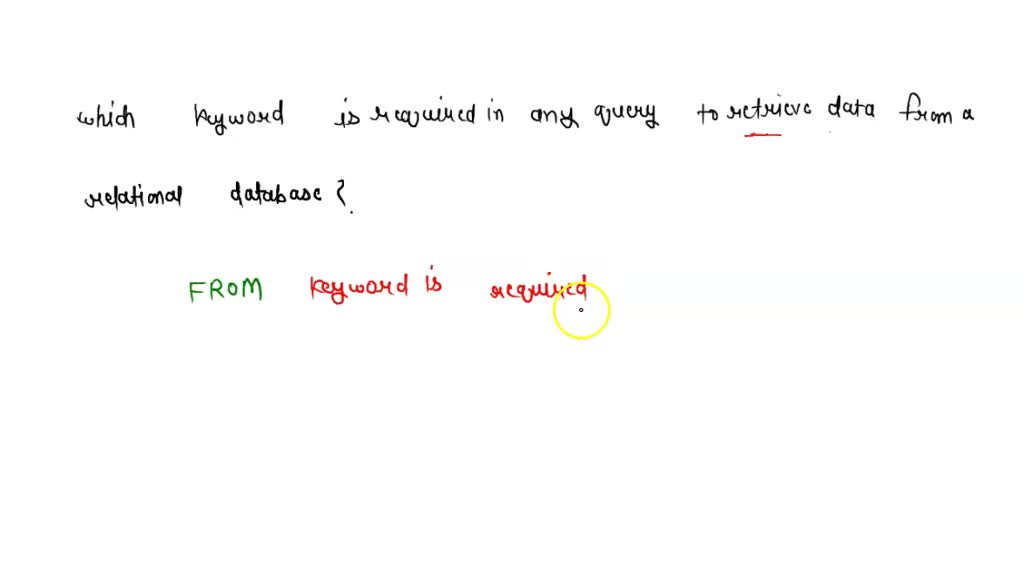 which keyword is required in any query to retrieve data from a
relational database ?
FROM keyword is required